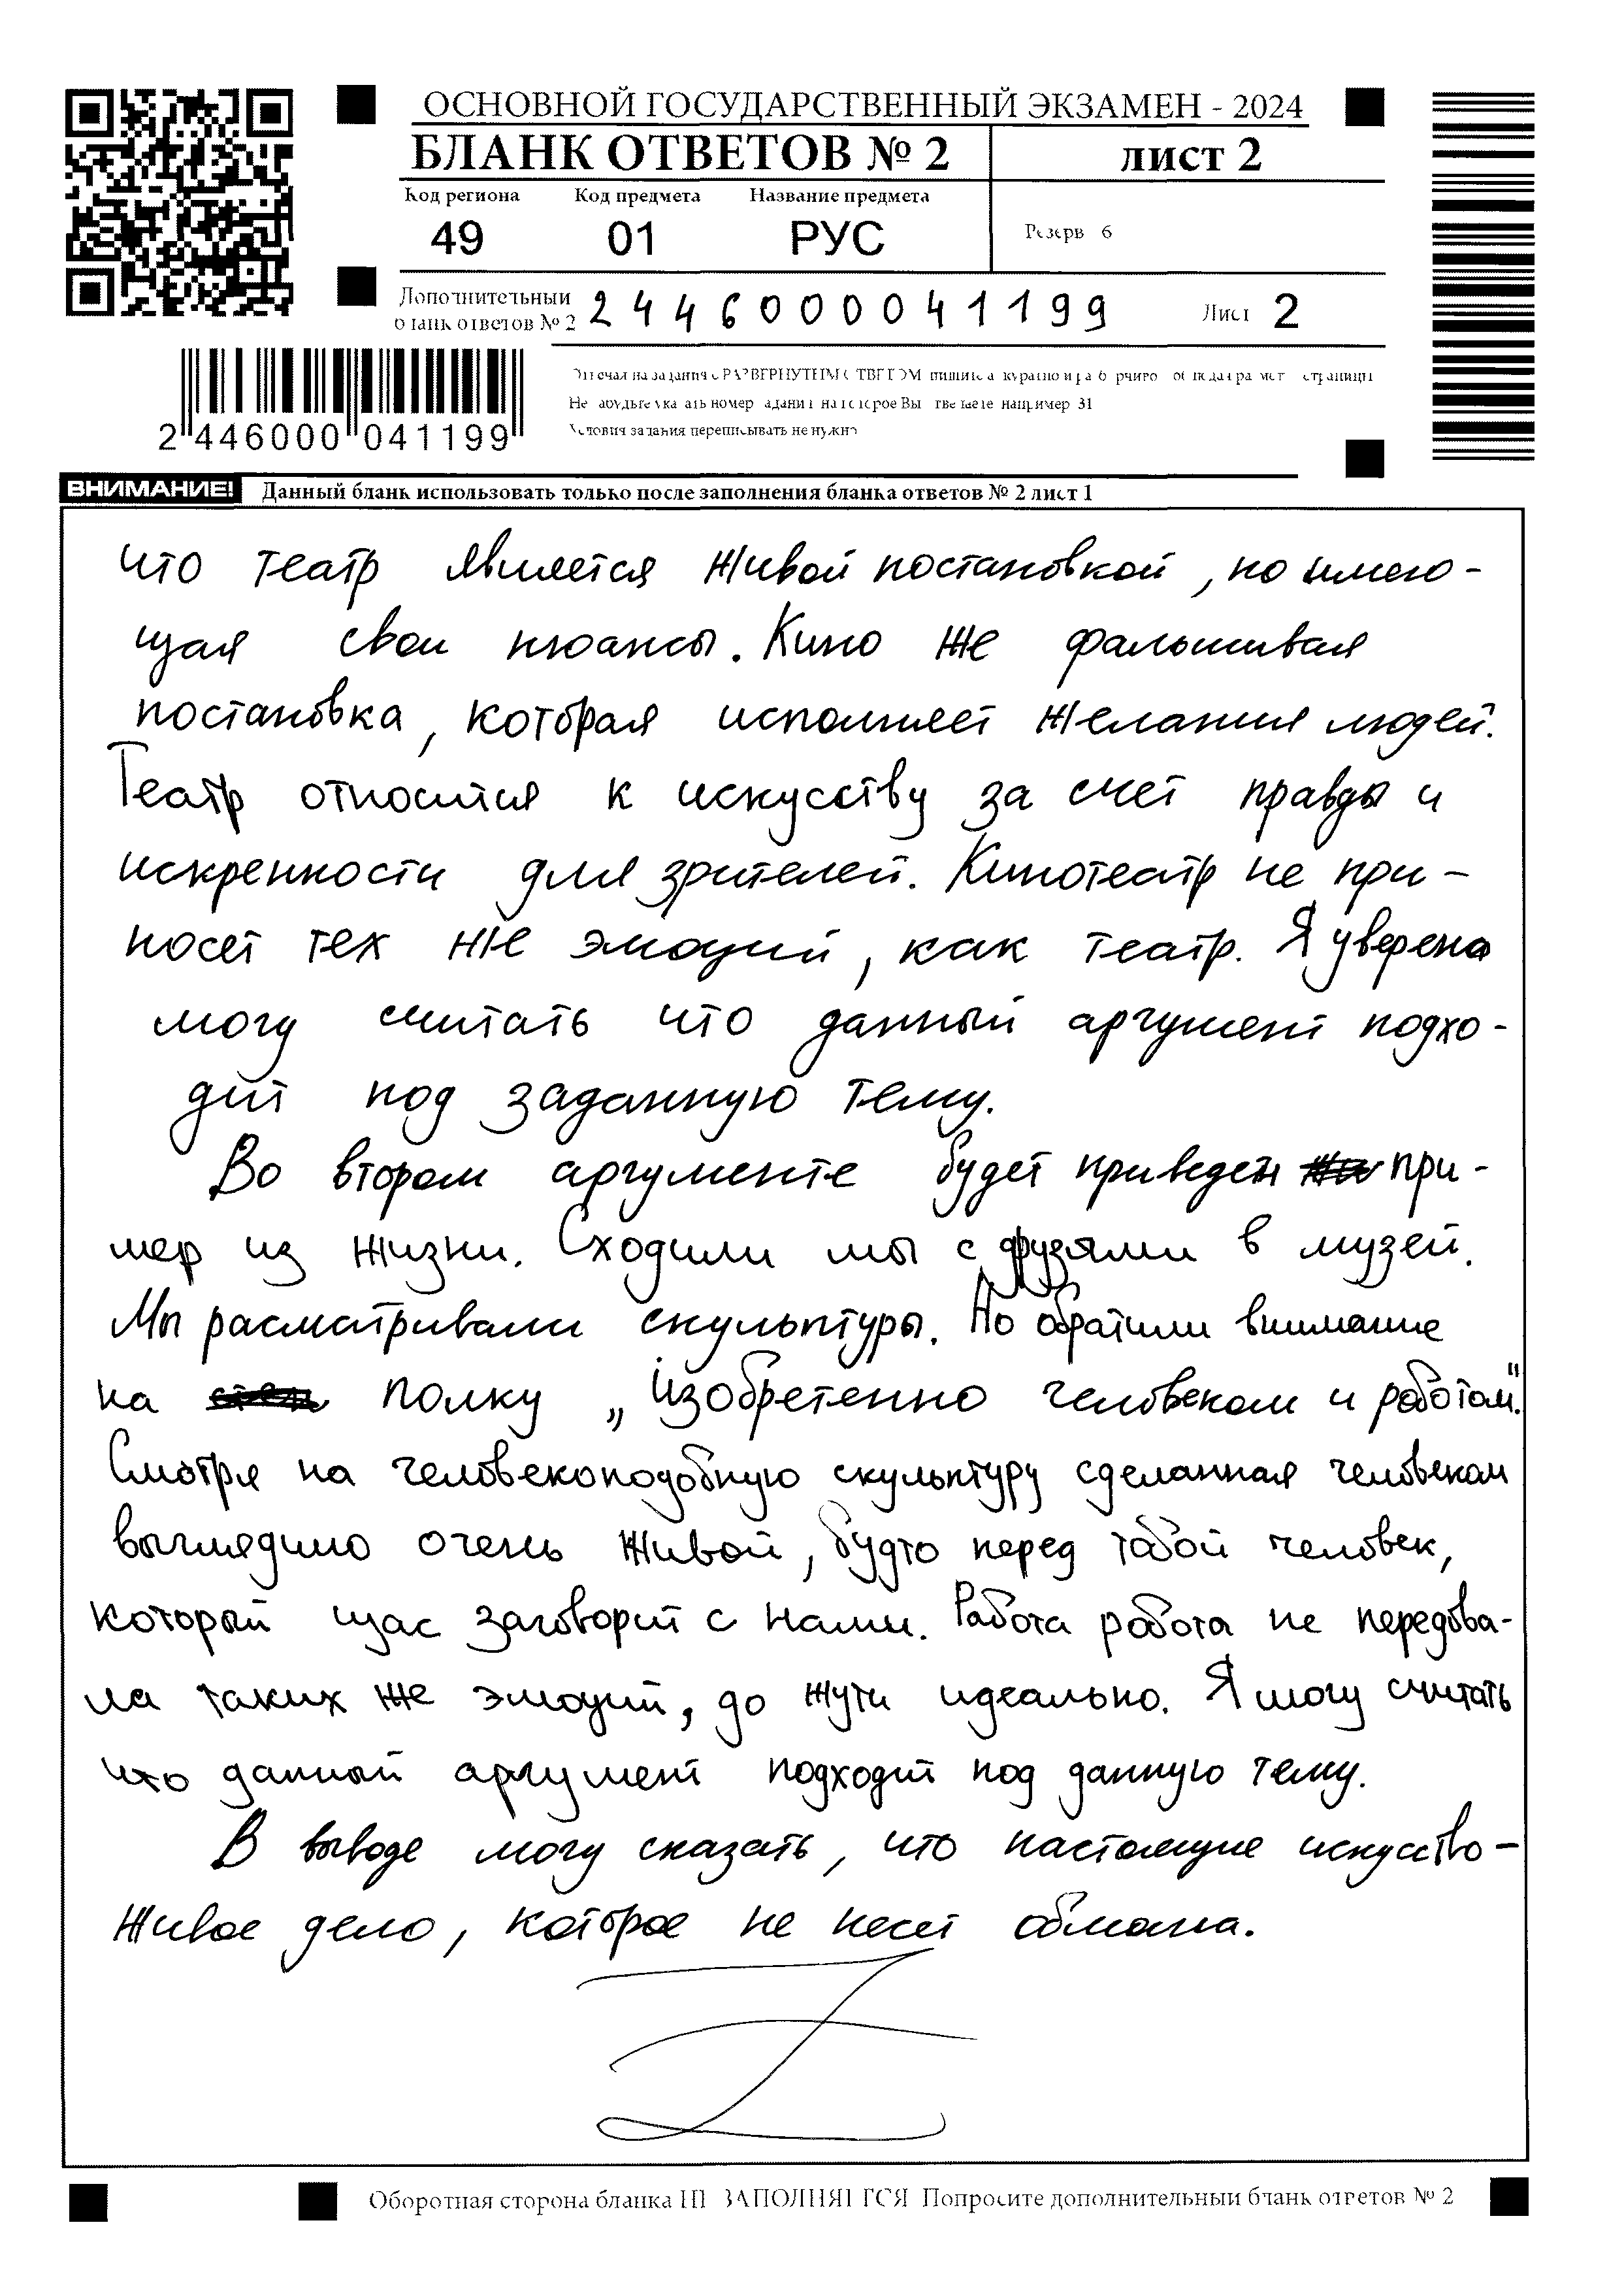 ОСНОВНОЙ ГОСУДАРСТВЕННЫЙ ЭКЗАМЕН - 2024
БЛАНК ОТВЕТОВ № 2
лист 2
Код региона Код предмета Название предмета
49 01 РУС
Резерв 6
Дополнительный
бланк ответов № 2 2446000041199
Лист 2
2 446000 041199
Условия задания переписывать не нужно
ВНИМАНИЕ! Данный бланк использовать только после заполнения бланка ответов № 2 лист 1
что театр является живой постановкой, но имею-
щая свои нюансы. Кино же фальшивая
постановка, которая исполняет желания людей.
Театр относится к искусству за счет правды и
искренности для зрителей. Кинотеатр не при-
носет тех же эмоций, как театр. Я уверена
могу считать что данный аргумент подхо-
дит под заданную тему.
Во втором аргументе будет приведен при-
мер из жизни. Сходили мы с друзями в музей.
Мы расматривали скульптуры. Но обратили внимание
на полку „изобретенно человеком и роботом".
Смотря на человекоподобную скульптуру сделанная человеком
выглядило очень живой, будто перед тобой человек,
который щас заговорит с нами. Работа робота не передова-
ла таких же эмоций, до жути идеально. Я могу считать
что данный аргумент подходит под данную тему.
В выводе могу сказать, что настоящие искусство-
живое дело, которое не несет обмана.
Оборотная сторона бланка НЕ ЗАПОЛНЯЕТСЯ Попросите дополнительный бланк ответов № 2